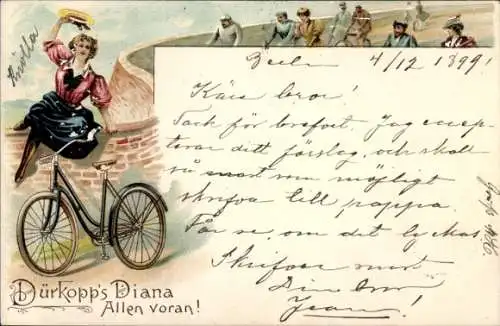 4/12 1899
Kära bror!
Tack för brefvet. Jag accep
terar ditt förslag, och skall
så snart som möjligt
skrifva till pappa.
Får se om det lyckas.
Skrifver snart
Din bror
Dürkopp's Diana
Allen voran!